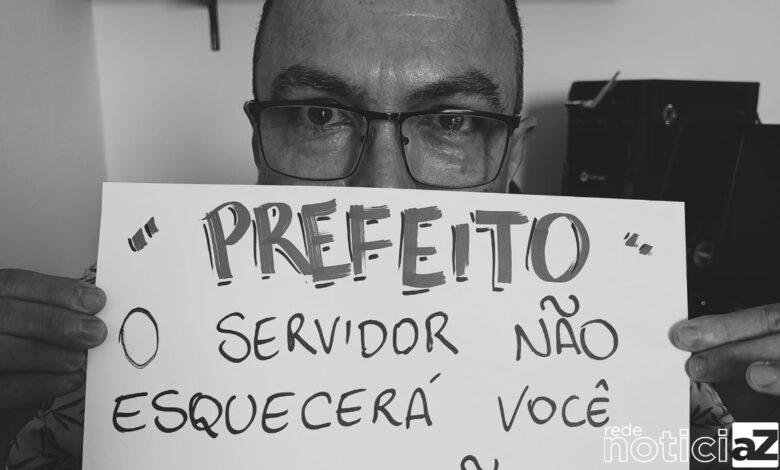 " PREFEITO "
O SERVIDOR NÃO
ESQUECERÁ VOCÊ
rede
noticiaZ